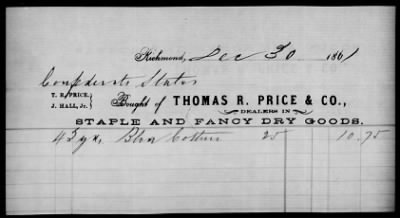 Richmond, Dec 30 1861
Confederate States
T. R. PRICE.
J. HALL, Jr.
Bought of THOMAS R. PRICE & CO.,
DEALERS IN
STAPLE AND FANCY DRY GOODS.
43 yds Blea Cotton 25 10.75